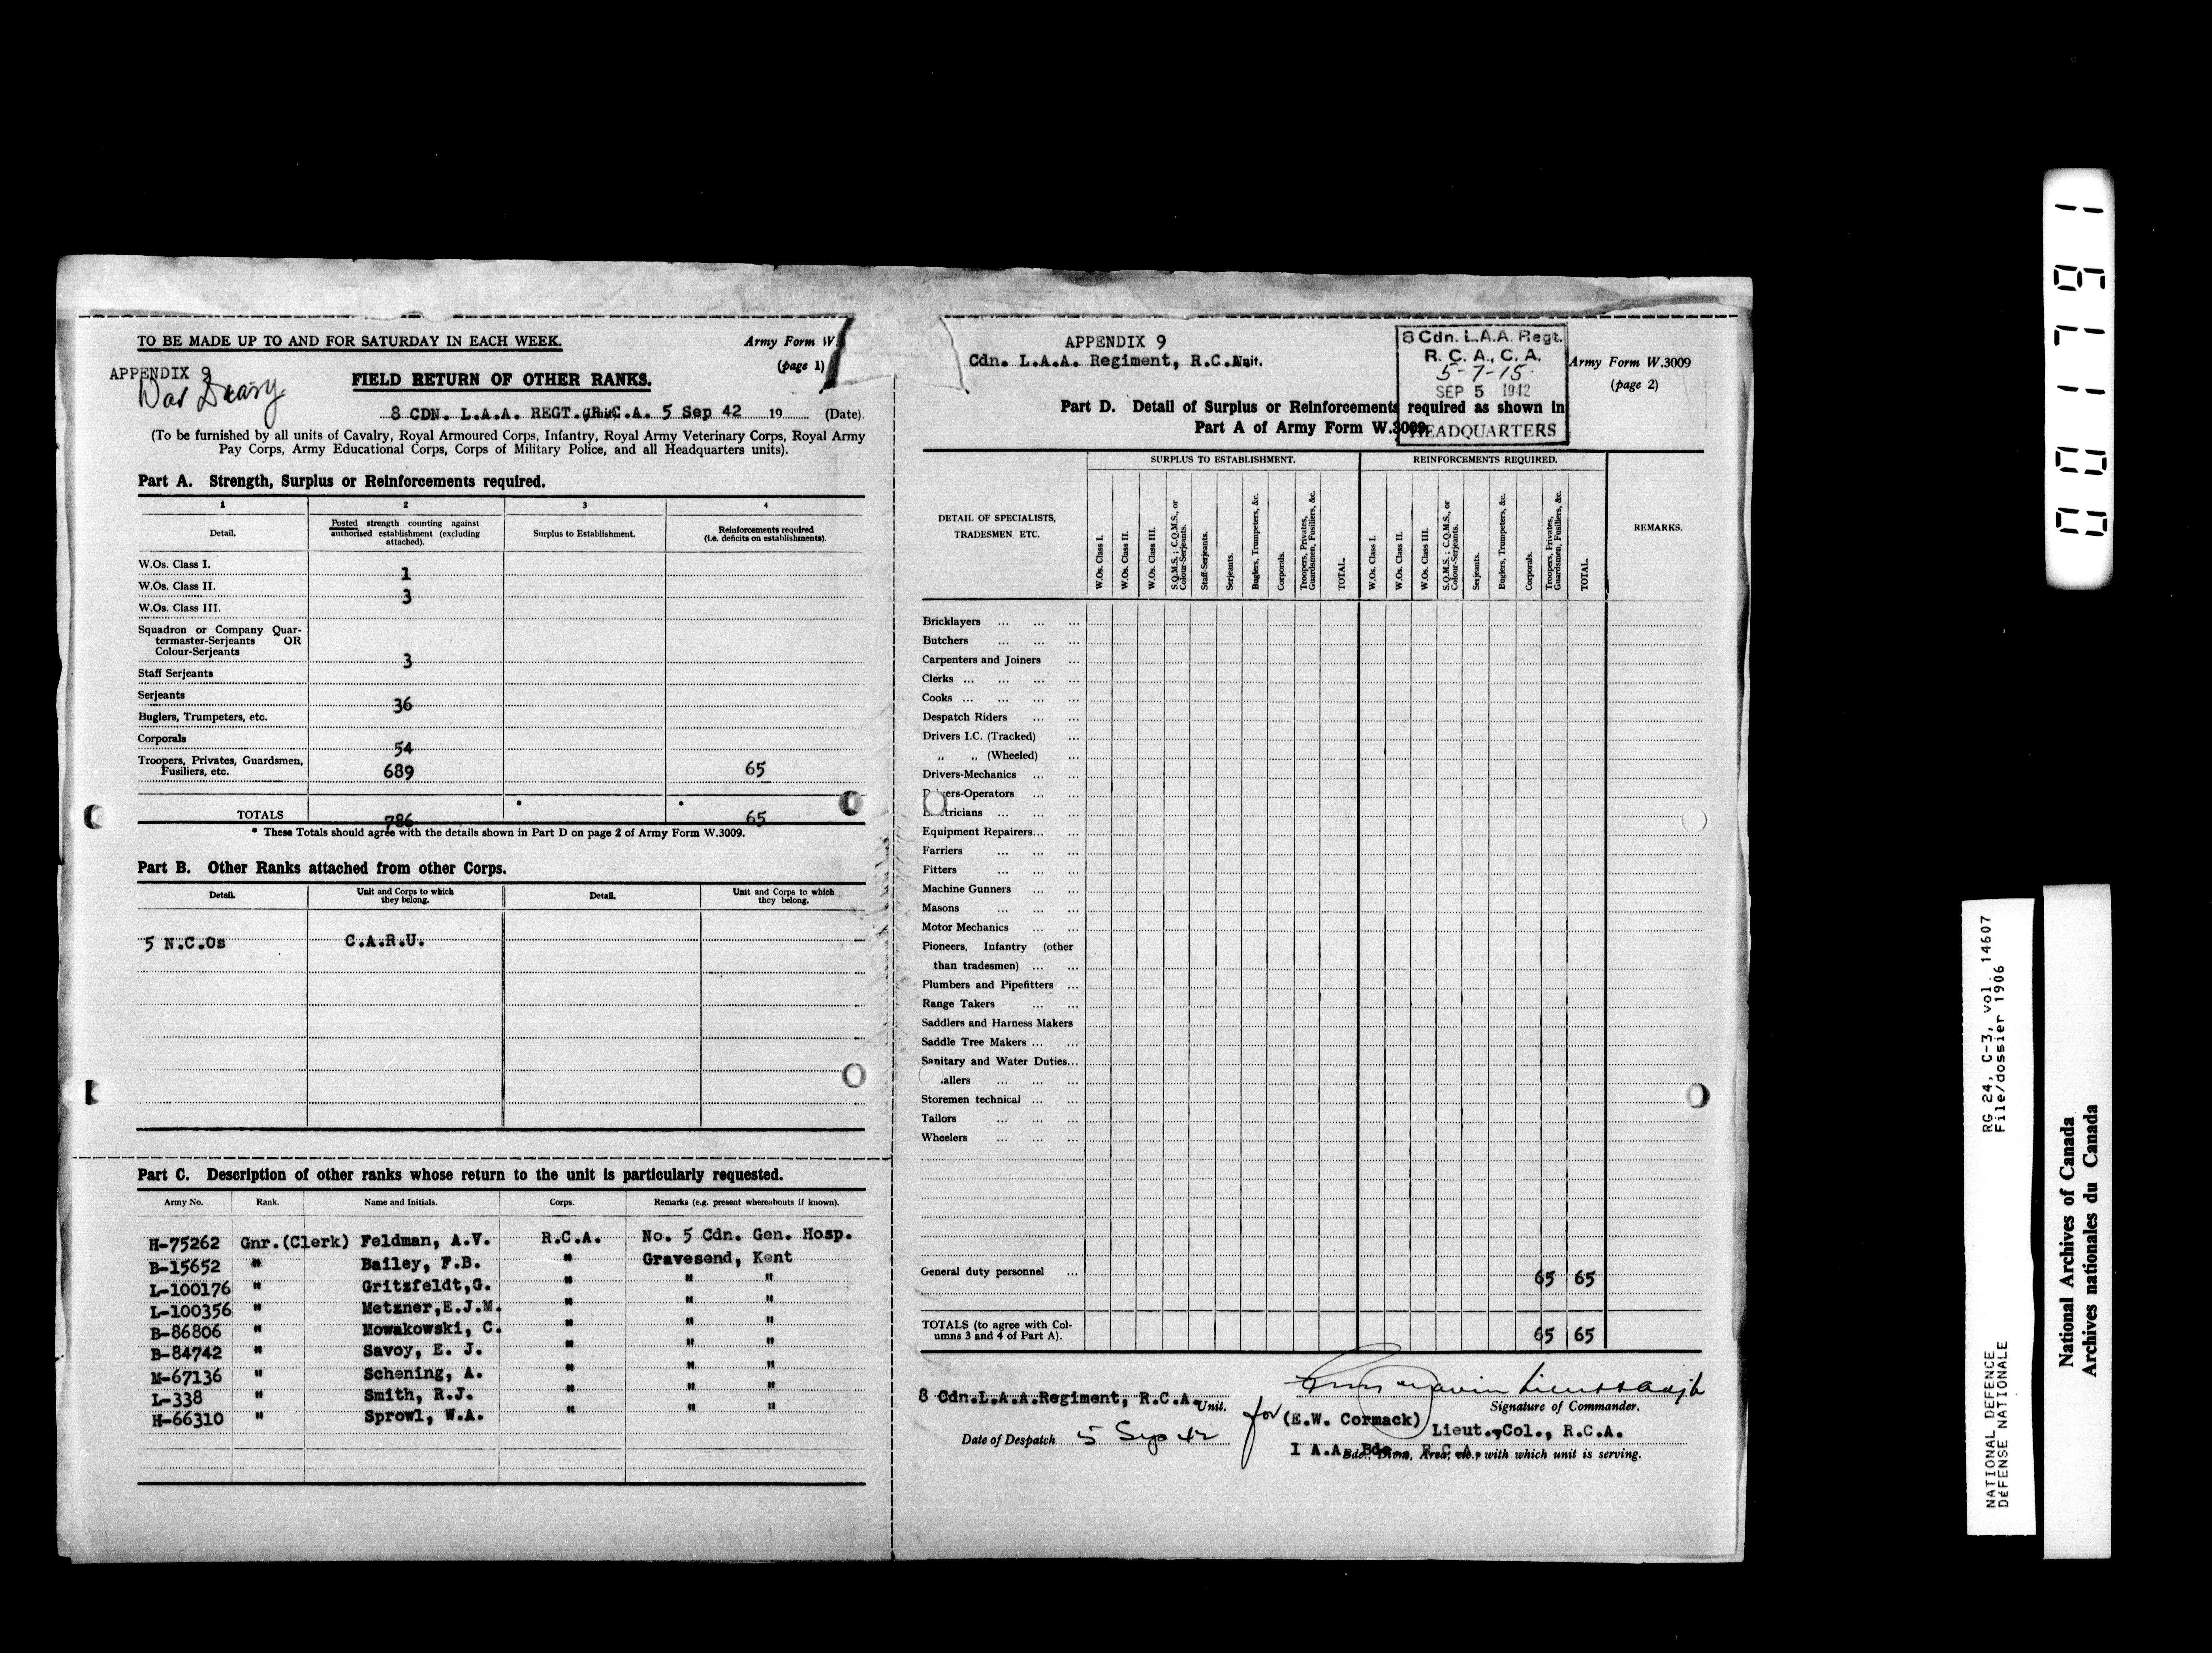 TO BE MADE UP TO AND FOR SATURDAY IN EACH WEEK.
Army Form W.
(page 1)
APPENDIX 9
War Diary
FIELD RETURN OF OTHER RANKS.
8 CDN. L.A.A. REGT. R.C.A. 5 Sep 42 19 (Date).
(To be furnished by all units of Cavalry, Royal Armoured Corps, Infantry, Royal Army Veterinary Corps, Royal Army
Pay Corps, Army Educational Corps, Corps of Military Police, and all Headquarters units).
Part A. Strength, Surplus or Reinforcements required.
1 2 3 4
Detail. Posted strength counting against authorised establishment (excluding attached). Surplus to Establishment. Reinforcements required (i.e. deficits on establishments).
W.Os. Class I. 1
W.Os. Class II. 3
W.Os. Class III.
Squadron or Company Quar-
termaster-Serjeants OR
Colour-Serjeants 3
Staff Serjeants
Serjeants 36
Buglers, Trumpeters, etc.
Corporals 54
Troopers, Privates, Guardsmen,
Fusiliers, etc. 689 65
TOTALS 786 * * 65
* These Totals should agree with the details shown in Part D on page 2 of Army Form W.3009.
Part B. Other Ranks attached from other Corps.
Detail. Unit and Corps to which they belong. Detail. Unit and Corps to which they belong.
5 N.C.Os C.A.R.U.
Part C. Description of other ranks whose return to the unit is particularly requested.
Army No. Rank. Name and Initials. Corps. Remarks (e.g. present whereabouts if known).
H-75262 Gnr.(Clerk) Feldman, A.V. R.C.A. No. 5 Cdn. Gen. Hosp.
B-15652 " Bailey, F.B. " Gravesend, Kent
L-100176 " Gritzfeldt,G. " " "
L-100356 " Metzner,E.J.M. " " "
B-86806 " Nowakowski, C. " " "
B-84742 " Savoy, E. J. " " "
M-67136 " Schening, A. " " "
L-338 " Smith, R.J. " " "
H-66310 " Sprowl, W.A. " " "
APPENDIX 9
Cdn. L.A.A. Regiment, R.C.A. Unit.
8 Cdn. L.A.A. Regt.
R. C. A., C. A.
5-7-15
SEP 5 1942
HEADQUARTERS
Army Form W.3009
(page 2)
Part D. Detail of Surplus or Reinforcements required as shown in
Part A of Army Form W.3009.
SURPLUS TO ESTABLISHMENT. REINFORCEMENTS REQUIRED.
DETAIL OF SPECIALISTS,
TRADESMEN, ETC.
W.Os. Class I.
W.Os. Class II.
W.Os. Class III.
S.Q.M.S. ; C.Q.M.S., or Colour-Serjeants.
Staff-Serjeants.
Serjeants.
Buglers, Trumpeters, &c.
Corporals.
Troopers, Privates, Guardsmen, Fusiliers, &c.
TOTAL.
W.Os. Class I.
W.Os. Class II.
W.Os. Class III.
S.Q.M.S. ; C.Q.M.S., or Colour-Serjeants.
Serjeants.
Buglers, Trumpeters, &c.
Corporals.
Troopers, Privates, Guardsmen, Fusiliers, &c.
TOTAL.
REMARKS.
Bricklayers ... ... ...
Butchers ... ... ...
Carpenters and Joiners ...
Clerks ... ... ... ...
Cooks ... ... ... ...
Despatch Riders ... ...
Drivers I.C. (Tracked) ...
,, ,, (Wheeled) ...
Drivers-Mechanics ... ...
Drivers-Operators ... ...
Electricians ... ... ...
Equipment Repairers... ...
Farriers ... ... ...
Fitters ... ... ...
Machine Gunners ... ...
Masons ... ... ...
Motor Mechanics ... ...
Pioneers, Infantry (other
than tradesmen) ... ...
Plumbers and Pipefitters ...
Range Takers ... ...
Saddlers and Harness Makers
Saddle Tree Makers ... ...
Sanitary and Water Duties...
allers ... ... ...
Storemen technical ... ...
Tailors ... ... ...
Wheelers ... ... ...
General duty personnel ... 65 65
TOTALS (to agree with Col-
umns 3 and 4 of Part A). 65 65
8 Cdn.L.A.A.Regiment, R.C.A. Unit.
Signature of Commander.
for (E.W. Cormack)
Lieut.-Col., R.C.A.
Date of Despatch 5 Sep 42
1 A.A. Bde., R.C.A.
Bde., Divn., Area, etc., with which unit is serving.
001791
RG 24, C-3, vol. 14607
File/dossier 1906
NATIONAL DEFENCE
DÉFENSE NATIONALE
National Archives of Canada
Archives nationales du Canada